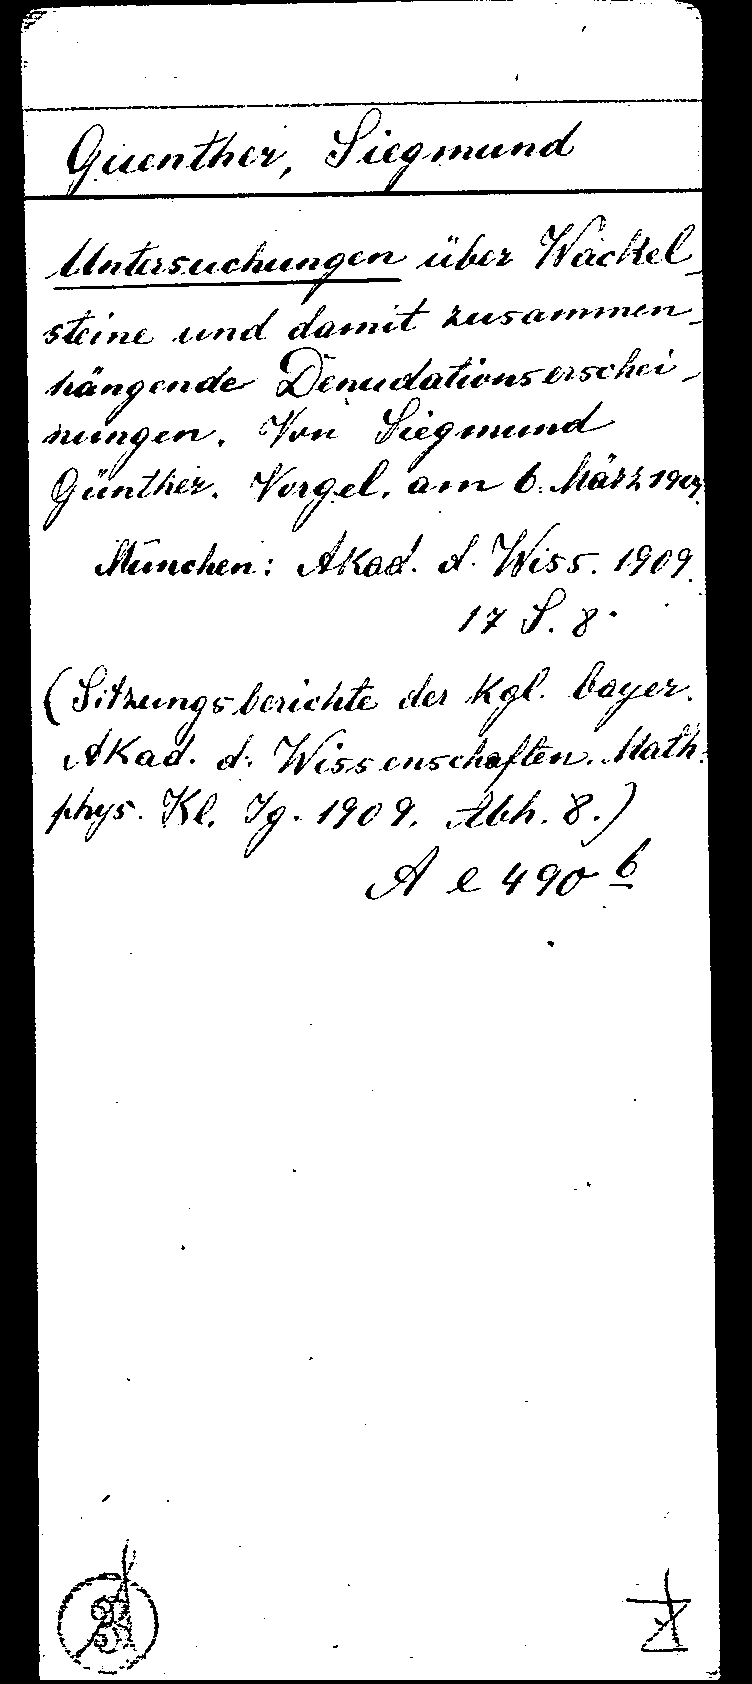 Guenther, Siegmund
Untersuchungen über Wackel-
steine und damit zusammen-
hängende Denudationserschei-
nungen. Von Siegmund
Günther. Vorgel. am 6. März 1909.
München: Akad. d. Wiss. 1909.
17 S. 8°
(Sitzungsberichte der Kgl. bayer.
Akad. d. Wissenschaften. Math.
phys. Kl. Jg. 1909. Abh. 8.)
A e 490 b